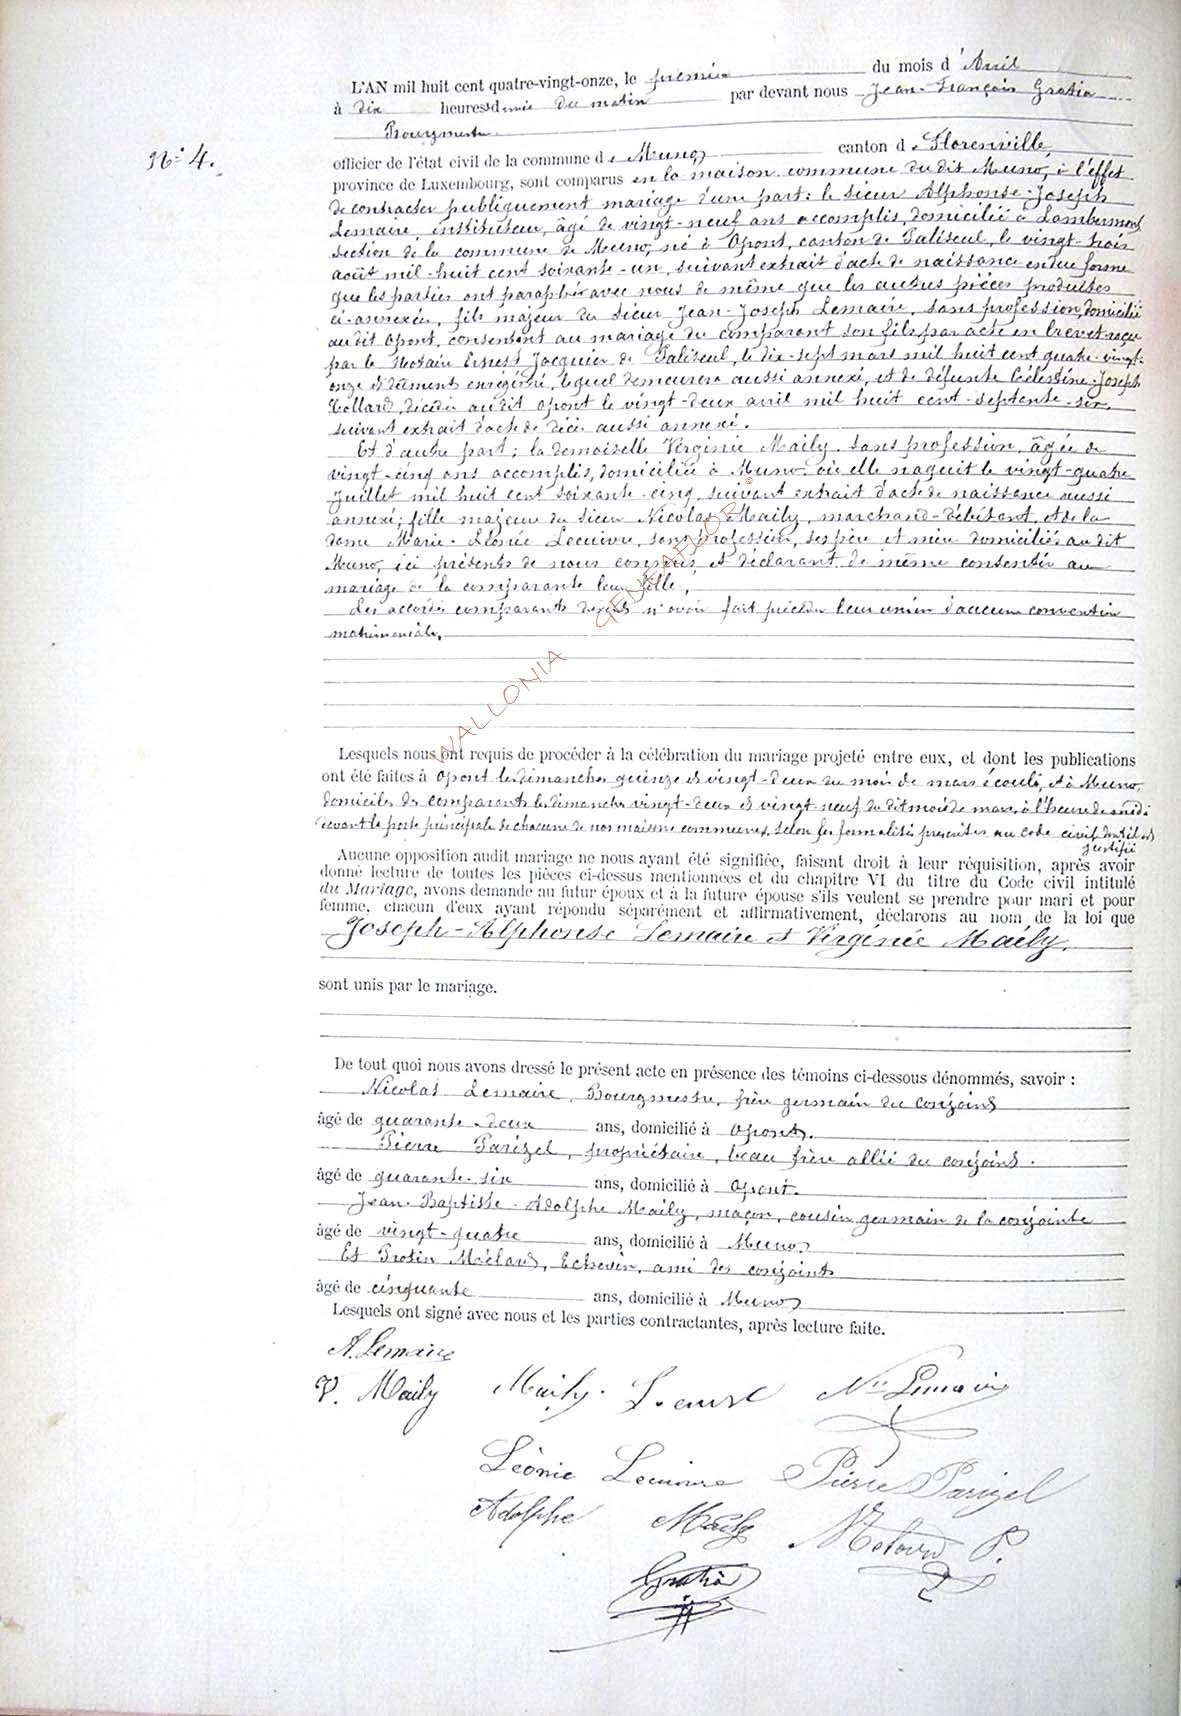 L'AN mil huit cent quatre-vingt-onze, le premier du mois d'Avril
à dix heures et demie du matin par devant nous Jean-François Gratia
Bourgmestre
N° 4.
officier de l'état civil de la commune de Muno, canton de Florenville,
province de Luxembourg, sont comparus en la maison commune du dit Muno, à l'effet
de contracter publiquement mariage d'une part : le sieur Alphonse-Joseph
Lemaire instituteur, âgé de vingt-neuf ans accomplis, domicilié à Lambermont
section de la commune de Muno, né à Opont, canton de Paliseul, le vingt-trois
août mil-huit cent soixante-un, suivant extrait d'acte de naissance en due forme
que les parties ont paraphé avec nous de même que les autres pièces produites
ci-annexées, fils majeur du sieur Jean-Joseph Lemaire, sans profession, domicilié
au dit Opont, consentant au mariage du comparant son fils par acte en brevet reçu
par le Notaire Ernest Jacquier de Paliseul, le dix-sept mars mil huit cent quatre-vingt-
onze et dûment enrégitré, lequel demeurera aussi annexé, et de défunte Célestine-Joseph
Collard, décédée au dit Opont le vingt-deux avril mil huit cent-septente-six,
suivant extrait d'acte de décès aussi annexé.
Et d'autre part ; la demoiselle Virginie Maily, sans profession, âgée de
vingt-cinq ans accomplis, domiciliée à Muno, où elle naquit le vingt-quatre
Juillet mil huit cent soixante-cinq, suivant extrait d'acte de naissance aussi
annexé ; fille majeure du sieur Nicolas Maily, marchand-débitant, et de la
dame Marie-Léonie Lecuivre, sans profession, ses père et mère domiciliés au dit
Muno, ici présents de nous connus, et déclarant de même consentir au
mariage de la comparante leur fille,
Les accordés comparants n'avoir fait précéder leur union d'aucune convention
matrimoniale,
WALLONIA GENEAFLOR
Lesquels nous ont requis de procéder à la célébration du mariage projeté entre eux, et dont les publications
ont été faites à Opont les dimanches quinze et vingt-deux du mois de mars écoulé, et à Muno,
domiciles des comparants les dimanches vingt-deux et vingt-neuf du dit mois de mars, à l'heure de midi
devant la porte principale de chacune de nos maisons communes, selon les formalités prescrites au code civil
justifié
Aucune opposition audit mariage ne nous ayant été signifiée, faisant droit à leur réquisition, après avoir
donné lecture de toutes les pièces ci-dessus mentionnées et du chapitre VI du titre du Code civil intitulé
du Mariage, avons demandé au futur époux et à la future épouse s'ils veulent se prendre pour mari et pour
femme, chacun d'eux ayant répondu séparément et affirmativement, déclarons au nom de la loi que
Joseph-Alphonse Lemaire et Virginie Maily,
sont unis par le mariage.
De tout quoi nous avons dressé le présent acte en présence des témoins ci-dessous dénommés, savoir :
Nicolas Lemaire, Bourgmestre, frère germain du conjoint
âgé de quarante-deux ans, domicilié à Opont,
Pierre Parizel, propriétaire, beau frère allié du conjoint.
âgé de quarante-six ans, domicilié à Opont.
Jean-Baptiste-Adolphe Maily, maçon, cousin germain de la conjointe
âgé de vingt-quatre ans, domicilié à Muno
Et Protin Mélard, Echevin, ami des conjoints
âgé de cinquante ans, domicilié à Muno
Lesquels ont signé avec nous et les parties contractantes, après lecture faite.
A. Lemaire
V. Maily Maily. Nas Lemaire
Léonie Lecuivre Pierre Parizel
Adolphe Maily Melard P.
Gratia